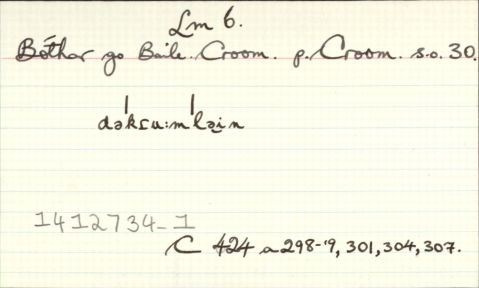 Lm 6.
Bóthar go Baile. Croom. p. Croom. s.o. 30.
dəkru:mˈləin
1412734-1
C 424 a 298-9, 301, 304, 307.